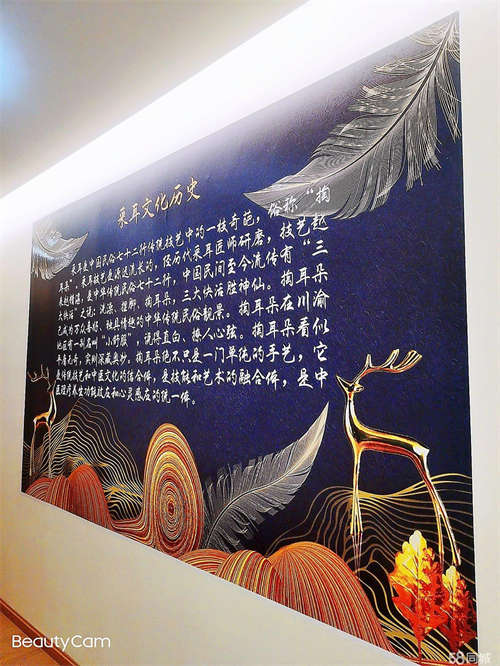 采耳文化历史
采耳是中国民俗七十二行传统技艺中的一枝奇葩，俗称“掏
耳朵”。采耳技艺源远流长的，经历代采耳医师研磨，技艺越
来越精湛，是中华传统民俗七十二行，中国民间至今流传有“三
大快活”之说：洗澡、捏脚、掏耳朵，三大快活胜神仙。掏耳朵
已成为万众喜好、独具情趣的中华传统民俗靓景。掏耳朵在川渝
地区有一别名叫“小舒服”，说得直白，撩人心弦。掏耳朵看似
平庸无奇，实则深藏奥妙。掏耳朵绝不只是一门单纯的手艺，它
是传统技艺和中医文化的结合体，是技能和艺术的融合体，是中
医理疗养生功能效应和心灵感应的统一体。
BeautyCam
58同城